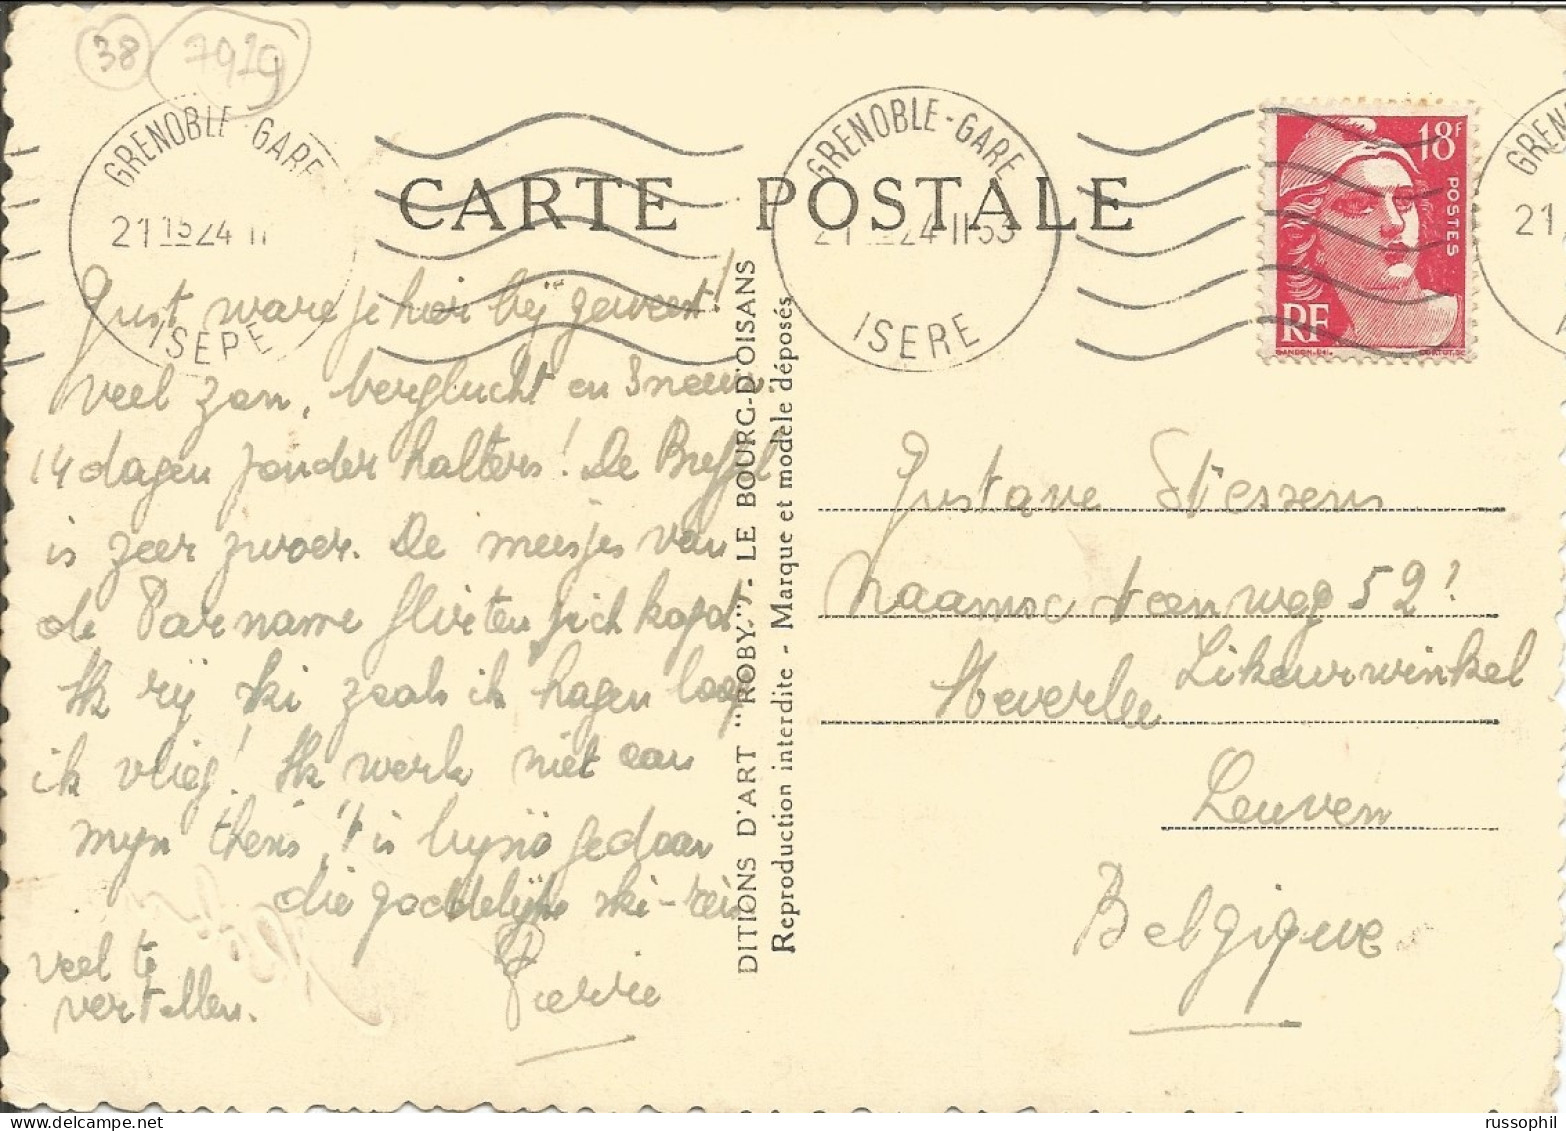 38
7919
GRENOBLE - GARE
21 15 24 II
ISERE
CARTE POSTALE
GRENOBLE - GARE
24 II 53
ISERE
18F
POSTES
RF
GANDON-DEL.
CORTOT.SC
GREN
21
I
Gust ware je hier bij geweest!
veel zon, berglucht en sneeuw
14 dagen zonder halters! De Breffel
is zeer zwoer. De meisjes van
de Parname flirten zich kapot
Ik rij ski zoals ik hagen loop
ik vlieg! Ik werk niet aan
mijn thesis 't is bijna gedaan
die goddelijke ski-reis
veel te
vertellen.
Pierre
DITIONS D'ART "ROBY" - LE BOURG-D'OISANS
Reproduction interdite - Marque et modèle déposés
Gustave Stessens
Naamse steenweg 52!
Heverlee Likeurwinkel
Leuven
Belgique
www.russophil.com